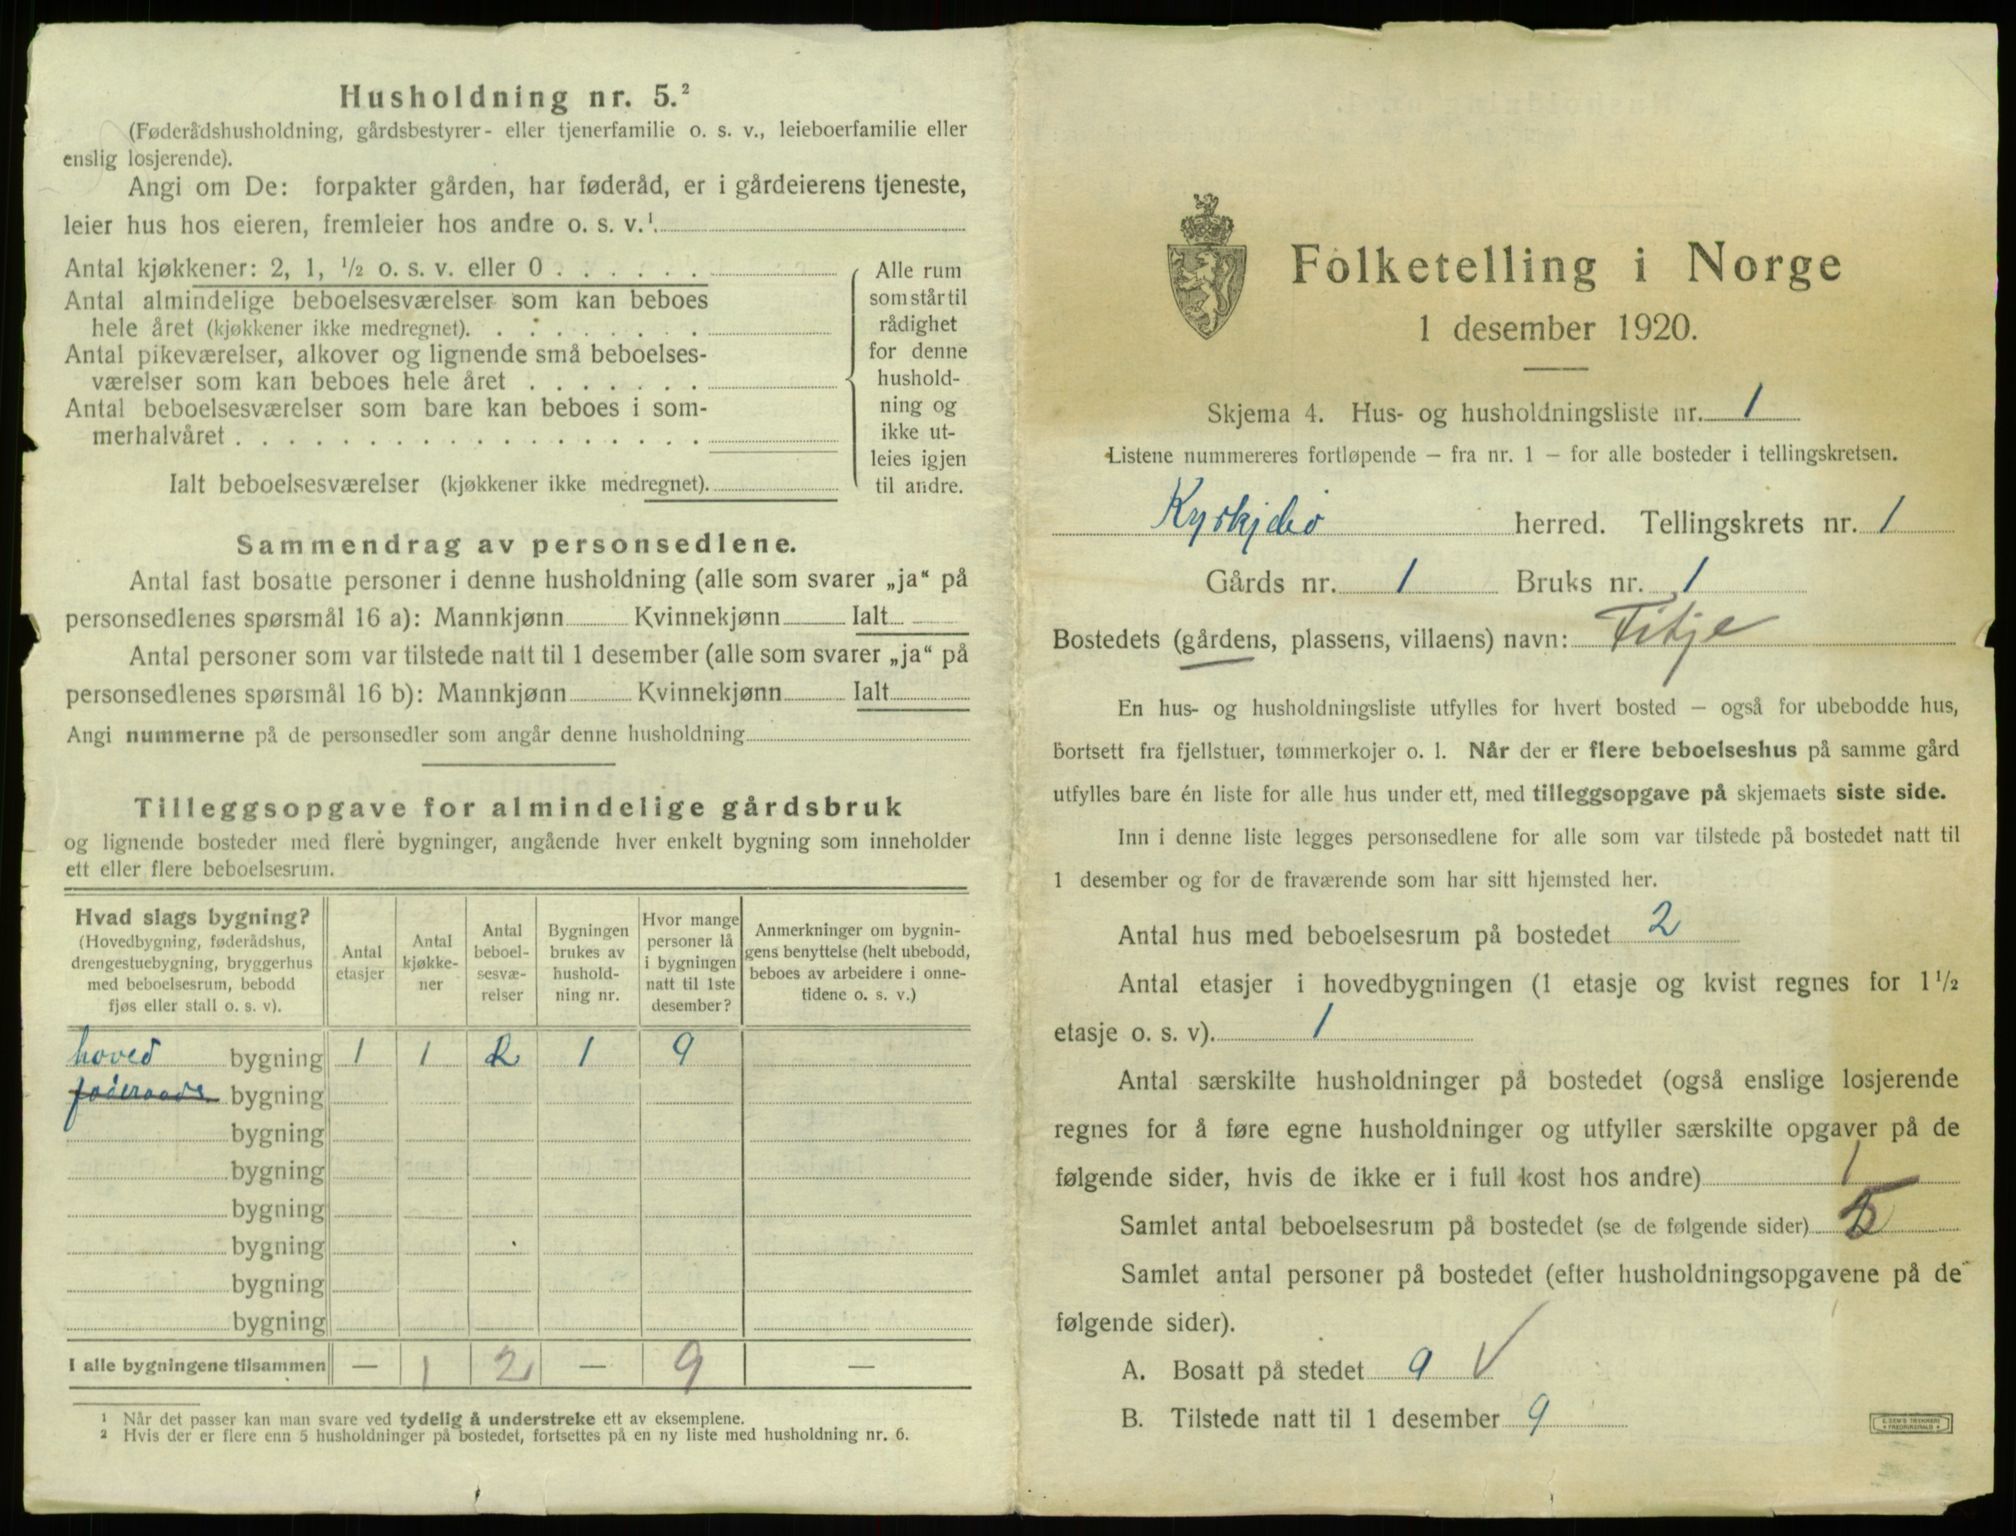 Husholdning nr. 5.²
(Føderådshusholdning, gårdsbestyrer- eller tjenerfamilie o. s. v., leieboerfamilie eller
enslig losjerende).
Angi om De: forpakter gården, har føderåd, er i gårdeierens tjeneste,
leier hus hos eieren, fremleier hos andre o. s. v.¹
Antal kjøkkener: 2, 1, ½ o. s. v. eller 0 . . . . . .
Antal almindelige beboelsesværelser som kan beboes
hele året (kjøkkener ikke medregnet). . . . . . . . .
Antal pikeværelser, alkover og lignende små beboelses-
værelser som kan beboes hele året . . . . . . .
Antal beboelsesværelser som bare kan beboes i som-
merhalvåret . . . . . . . . . . . . . . . . . .
Alle rum
som står til
rådighet
for denne
hushold-
ning og
ikke ut-
leies igjen
til andre.
Ialt beboelsesværelser (kjøkkener ikke medregnet).
Sammendrag av personsedlene.
Antal fast bosatte personer i denne husholdning (alle som svarer „ja“ på
personsedlenes spørsmål 16 a): Mannkjønn Kvinnekjønn Ialt
Antal personer som var tilstede natt til 1 desember (alle som svarer „ja“ på
personsedlenes spørsmål 16 b): Mannkjønn Kvinnekjønn Ialt
Angi nummerne på de personsedler som angår denne husholdning
Tilleggsopgave for almindelige gårdsbruk
og lignende bosteder med flere bygninger, angående hver enkelt bygning som inneholder
ett eller flere beboelsesrum.
Hvad slags bygning?
(Hovedbygning, føderådshus,
drengestuebygning, bryggerhus
med beboelsesrum, bebodd
fjøs eller stall o. s. v).
Antal
etasjer
Antal
kjøkke-
ner
Antal
beboel-
sesvæ-
relser
Bygningen
brukes av
hushold-
ning nr.
Hvor mange
personer lå
i bygningen
natt til 1ste
desember?
Anmerkninger om bygnin-
gens benyttelse (helt ubebodd,
beboes av arbeidere i onne-
tidene o. s. v.)
hoved bygning 1 1 2 1 9
føderaads bygning
bygning
bygning
bygning
bygning
bygning
bygning
I alle bygningene tilsammen — 1 2 — 9 —
¹ Når det passer kan man svare ved tydelig å understreke ett av eksemplene.
² Hvis der er flere enn 5 husholdninger på bostedet, fortsettes på en ny liste med husholdning nr. 6.
Folketelling i Norge
1 desember 1920.
Skjema 4. Hus- og husholdningsliste nr. 1
Listene nummereres fortløpende – fra nr. 1 – for alle bosteder i tellingskretsen.
Kyrkjebø herred. Tellingskrets nr. 1
Gårds nr. 1 Bruks nr. 1
Bostedets (gårdens, plassens, villaens) navn: Fitje
En hus- og husholdningsliste utfylles for hvert bosted – også for ubebodde hus,
bortsett fra fjellstuer, tømmerkojer o. l. Når der er flere beboelseshus på samme gård
utfylles bare én liste for alle hus under ett, med tilleggsopgave på skjemaets siste side.
Inn i denne liste legges personsedlene for alle som var tilstede på bostedet natt til
1 desember og for de fraværende som har sitt hjemsted her.
Antal hus med beboelsesrum på bostedet 2
Antal etasjer i hovedbygningen (1 etasje og kvist regnes for 1½
etasje o. s. v). 1
Antal særskilte husholdninger på bostedet (også enslige losjerende
regnes for å føre egne husholdninger og utfyller særskilte opgaver på de
følgende sider, hvis de ikke er i full kost hos andre) 1
Samlet antal beboelsesrum på bostedet (se de følgende sider)
Samlet antal personer på bostedet (efter husholdningsopgavene på de
følgende sider).
A. Bosatt på stedet 9 ✓
B. Tilstede natt til 1 desember 9